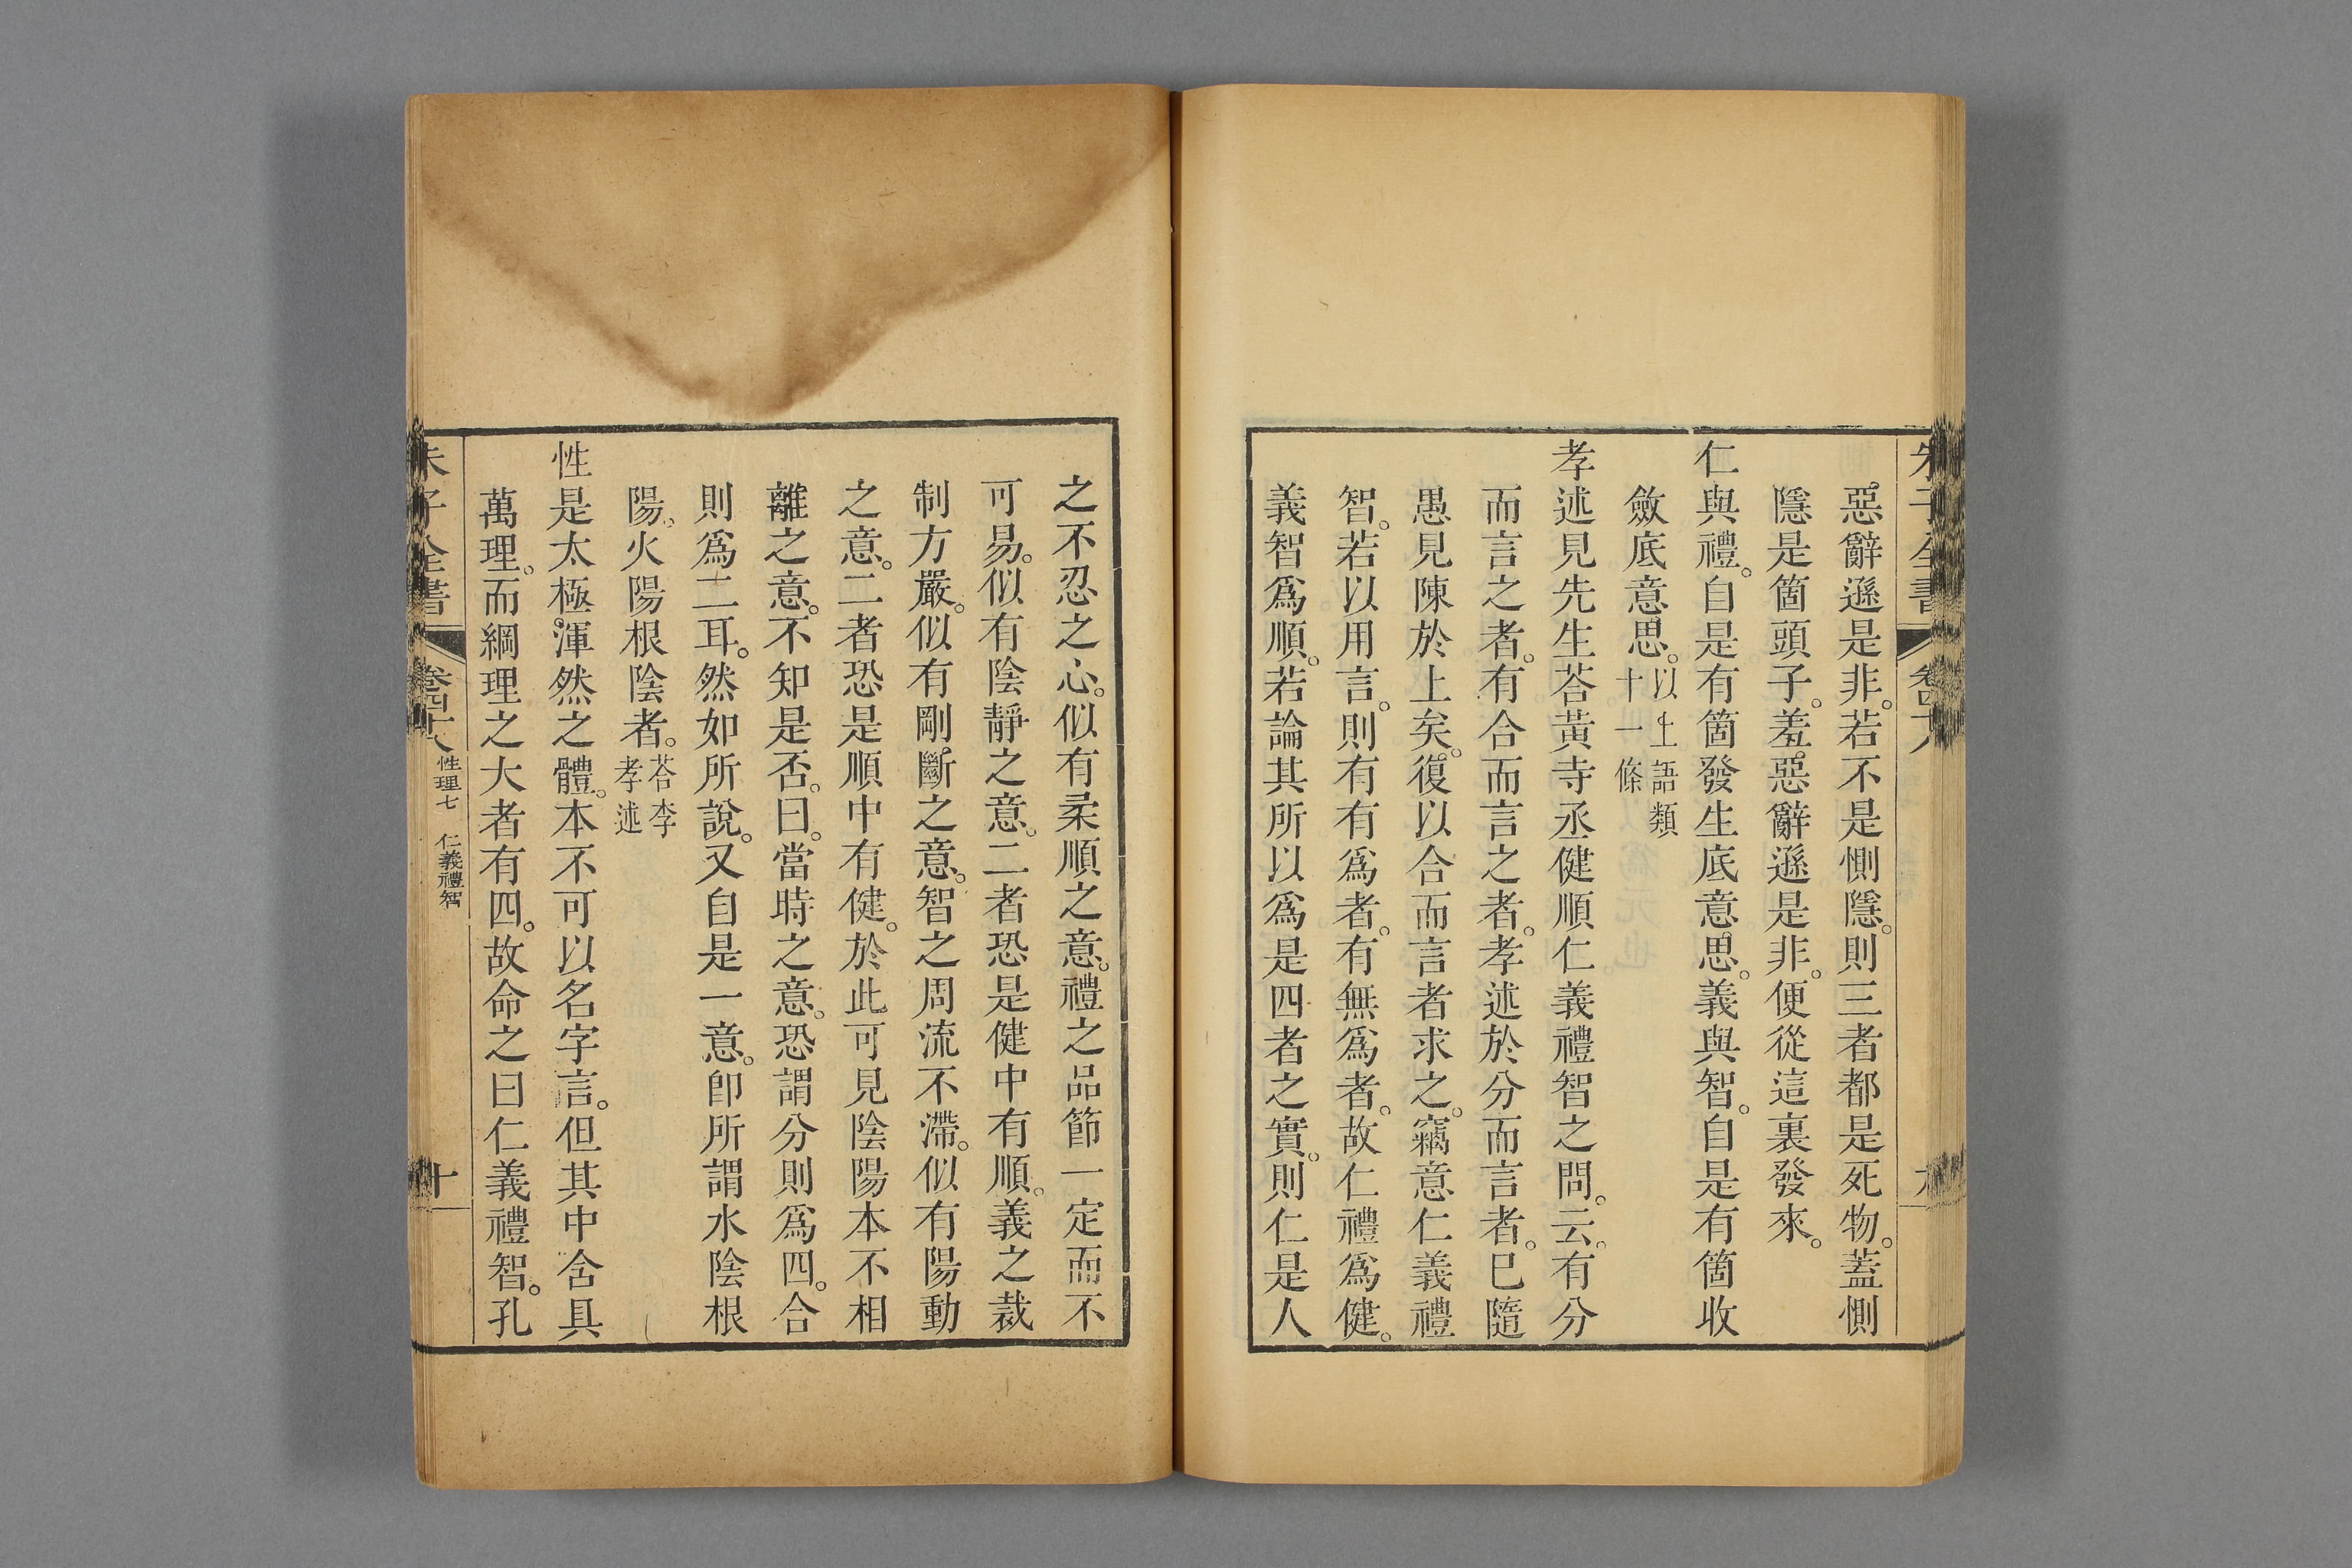 朱子全書 卷四十八 九
惡辭遜是非。若不是惻隱。則三者都是死物。蓋惻
隱是箇頭子。羞惡辭遜是非。便從這裏發來。
仁與禮。自是有箇發生底意思。義與智。自是有箇收
斂底意思。以上語類
十一條
孝述見先生荅黃寺丞健順仁義禮智之問。云。有分
而言之者。有合而言之者。孝述於分而言者。已隨
愚見陳於上矣。復以合而言者求之。竊意仁義禮
智。若以用言。則有有爲者。有無爲者。故仁禮爲健。
義智爲順。若論其所以爲是四者之實。則仁是人
之不忍之心。似有柔順之意。禮之品節一定而不
可易。似有陰靜之意。二者恐是健中有順。義之裁
制方嚴。似有剛斷之意。智之周流不滯。似有陽動
之意。二者恐是順中有健。於此可見陰陽本不相
離之意。不知是否。曰。當時之意。恐謂分則爲四。合
則爲二耳。然如所說。又自是一意。卽所謂水陰根
陽。火陽根陰者。荅李
孝述
性是太極渾然之體。本不可以名字言。但其中含具
萬理。而綱理之大者有四。故命之曰仁義禮智。孔
朱子全書 卷四十八 性理七 仁義禮智 十